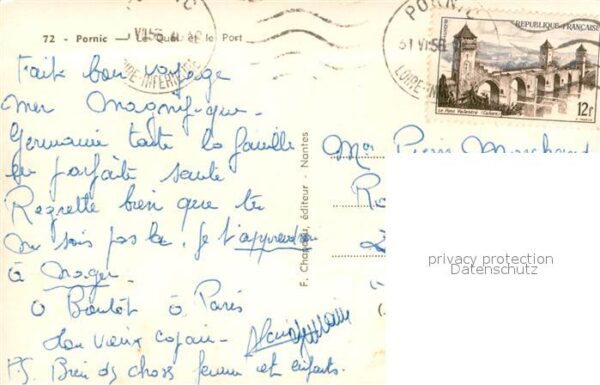 PORNIC
72 - Pornic - Le Quai et le Port
LOIRE-INFERIEURE
PORNIC
LOIRE-IN
POSTES
REPUBLIQUE FRANÇAISE
Le Pont Valentré (Cahors)
12f
Fait bon voyage
Mer Magnifique.
Germaine toute la famille
en parfaite santé
Regrette bien que tu
ne sois pas la. Je t'apprendrai
à nager.
à Bientôt à Paris
ton vieux copain
P.S. Bien des choses femme et enfants.
F. Chapeau, éditeur - Nantes
Mr Pierre Marchand
privacy protection
Datenschutz